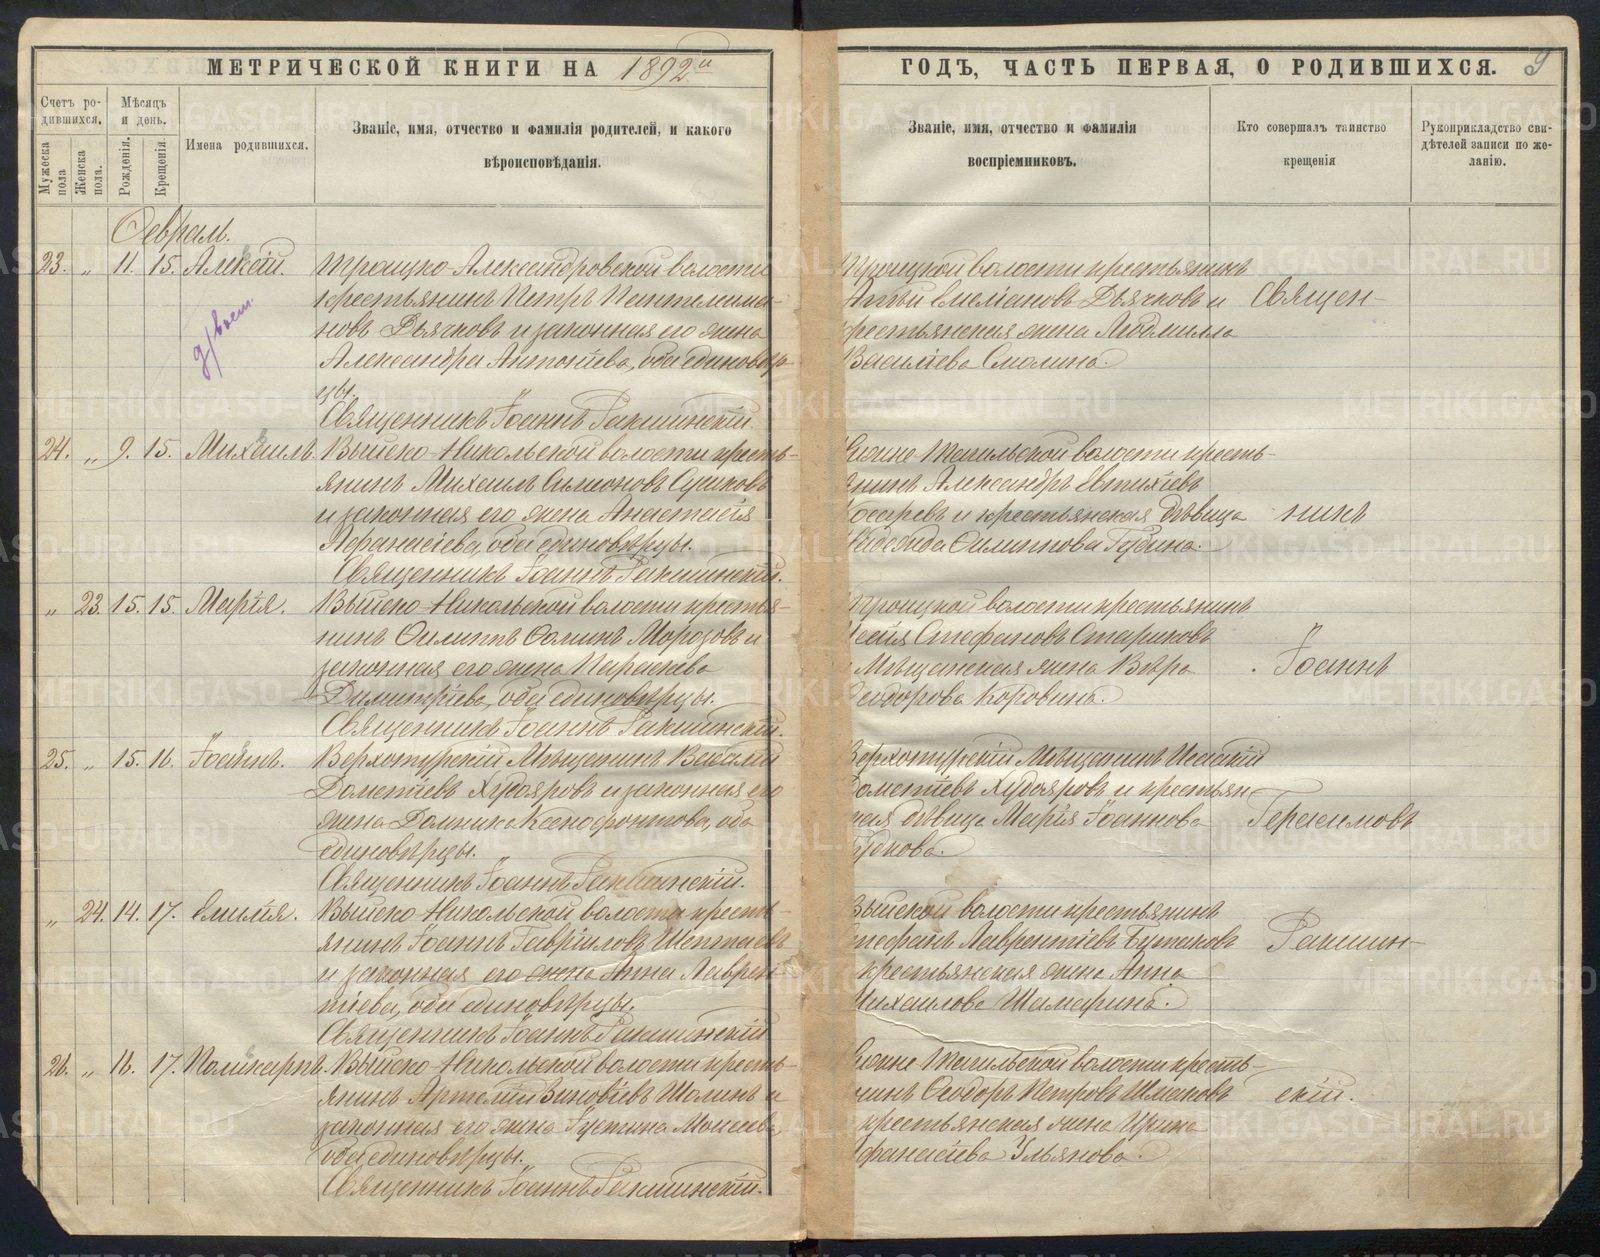 МЕТРИЧЕСКОЙ КНИГИ НА 1892й
ГОДЪ, ЧАСТЬ ПЕРВАЯ, О РОДИВШИХСЯ. 9
Счетъ родившихся.
Мужеска пола
Женска пола.
Мѣсяцъ и день.
Рожденія.
Крещенія.
Имена родившихся.
Званіе, имя, отчество и фамилія родителей, и какого
вѣроисповѣданія.
Званіе, имя, отчество и фамилія
воспріемниковъ.
Кто совершалъ таинство
крещенія
Рукоприкладство сви-
дѣтелей записи по же-
ланію.
Февраль.
23. „ 11. 15. Алексій. Троицко-Александровской волости
крестьянинъ Петръ Пантелеимо-
новъ Дьячковъ и законная его жена
Александра Антоніева, оба единовѣр-
цы.
Священникъ Іоаннъ Ракшинскій.
Троицкой волости крестьянинъ
Емеліановъ Дьячковъ и
крестьянская жена Людмилла
Василіева Смолина.
Священ-
24. „ 9. 15. Михаилъ. Выйско-Никольской волости кресть-
янинъ Михаилъ Симоновъ Сушковъ
и законная его жена Анастасія
Афанасіева, оба единовѣрцы.
Священникъ Іоаннъ Ракшинскій.
Тагильской волости кресть-
янинъ Александръ Евтихіевъ
и крестьянская дѣвица
Филиппова Губина.
никъ
„ 23. 15. 15. Марія. Выйско-Никольской волости крестья-
нинъ Филиппъ Фоминъ Морозовъ и
законная его жена Параскева
Димитріева, оба единовѣрцы.
Священникъ Іоаннъ Ракшинскій.
Троицкой волости крестьянинъ
Стефановъ Стариковъ
и Мѣщанская жена Вѣра
Феодорова Коровина.
Іоаннъ
25. „ 15. 16. Іоаннъ. Верхотурскій Мѣщанинъ
Дометіевъ Худояровъ и законная его
жена Домника Ксенофонтова, оба
единовѣрцы.
Священникъ Іоаннъ Ракшинскій.
Верхотурскій Мѣщанинъ
Дометіевъ Худояровъ и крестьян-
ская дѣвица Марія Іоаннова
Герасимовъ
„ 24. 14. 17. Емилія. Выйско-Никольской волости кресть-
янинъ Іоаннъ Гавріиловъ
и законная его жена Анна Лаврен-
тіева, оба единовѣрцы.
Священникъ Іоаннъ Ракшинскій
Выйской волости крестьянинъ
Стефанъ Лаврентіевъ Бутаковъ
крестьянская жена Анна
Михаилова Шамарина.
Ракшин-
26. „ 16. 17. Поликарпъ. Выйско-Никольской волости кресть-
янинъ Артемій Зиновіевъ Шолинъ и
законная его жена Іустина Моисеева,
оба единовѣрцы.
Священникъ Іоаннъ Ракшинскій.
Тагильской волости кресть-
янинъ Феодоръ Петровъ Шмаковъ
крестьянская жена Ирина
Афанасіева Ульянова.
скій.
METRIKI.GASO-URAL.RU